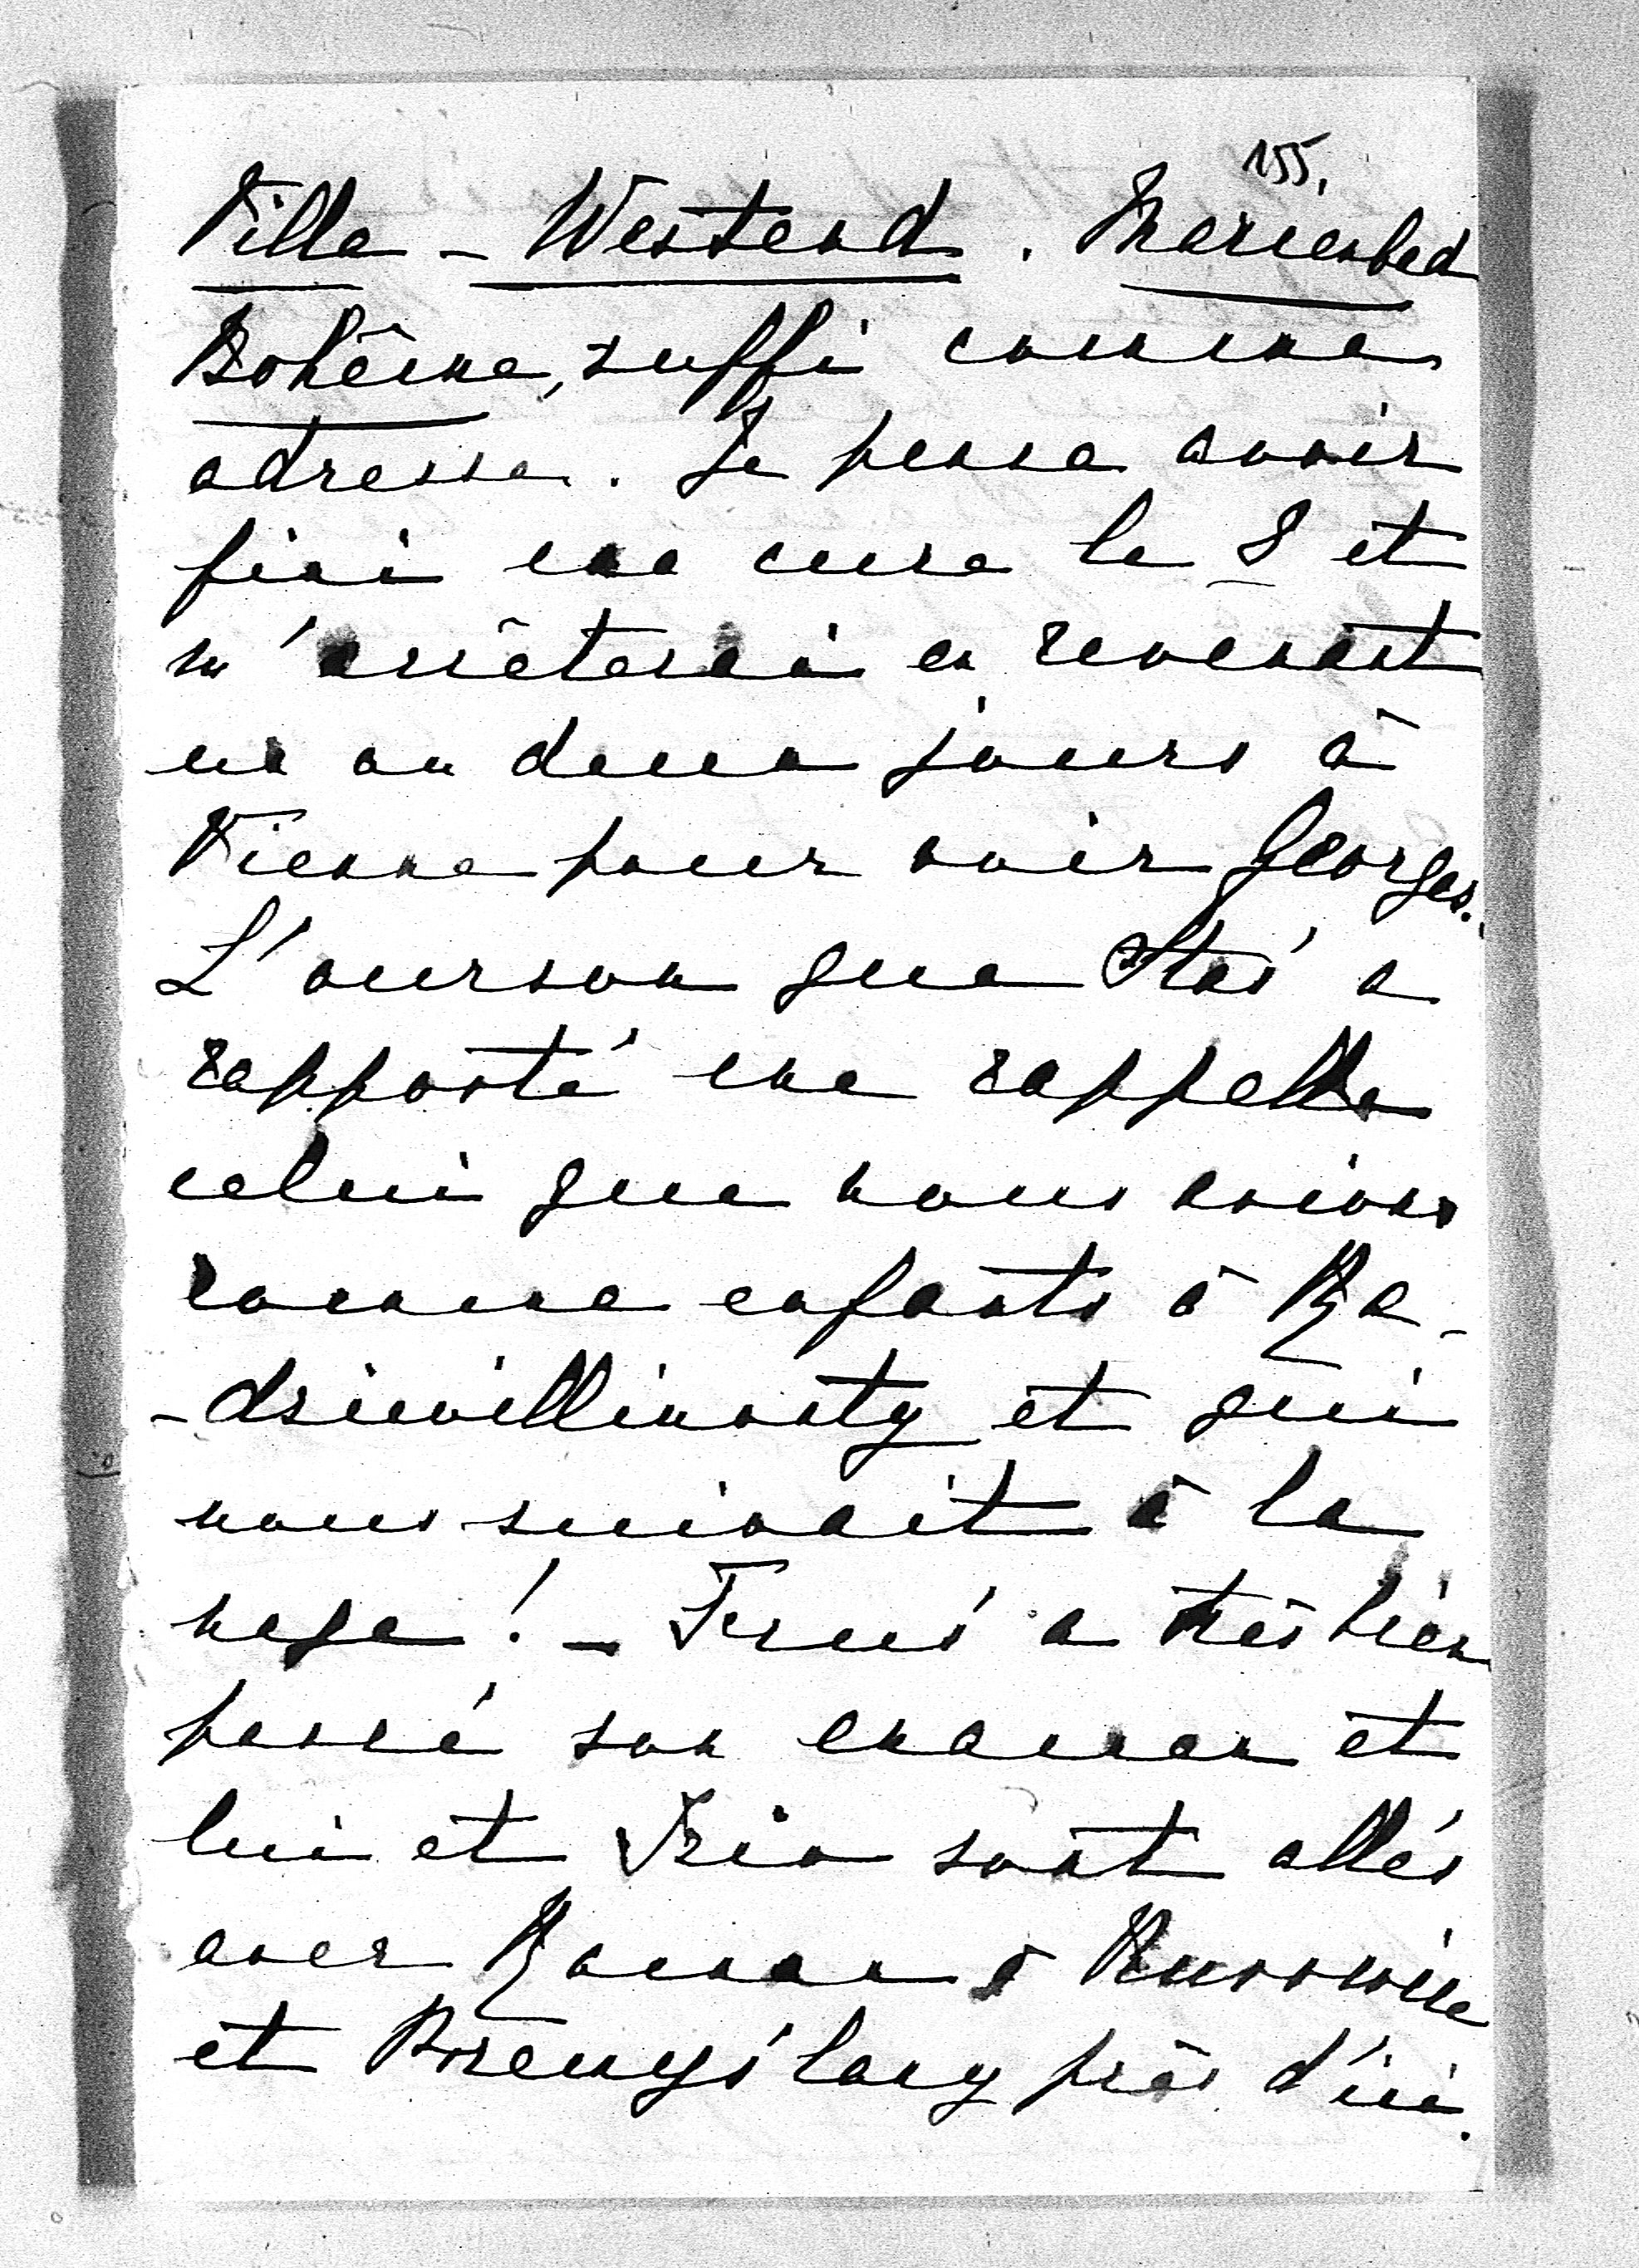 155.
Villa - Westend. Marienbad
Bohême, suffi comme
adresse. Je pense avoir
fini ma cure le 8 et
m'arrêterai en revenant
un ou deux jours à
Vienne pour voir Georges.
L'ourson que Staś a
rapporté me rappelle
celui que nous avions
comme enfants à Ra-
-dziwillimonty et qui
nous suivait à la
nage! - Fruś a très bien
passé son examen et
lui et sont allés
avec Roman à
et près d'ici.